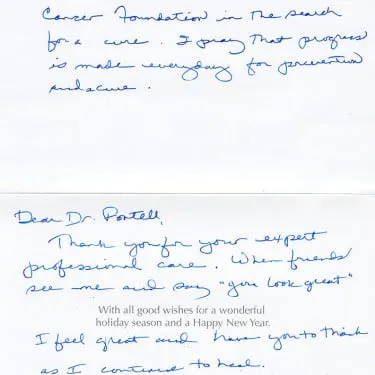 Cancer Foundation in the search
for a cure. I pray that progress
is made everyday for prevention
and a cure.
Dear Dr. Portell,
Thank you for your expert
professional care. When friends
see me and say "you look great"
With all good wishes for a wonderful
holiday season and a Happy New Year.
I feel great and have you to thank
as I continued to heal.